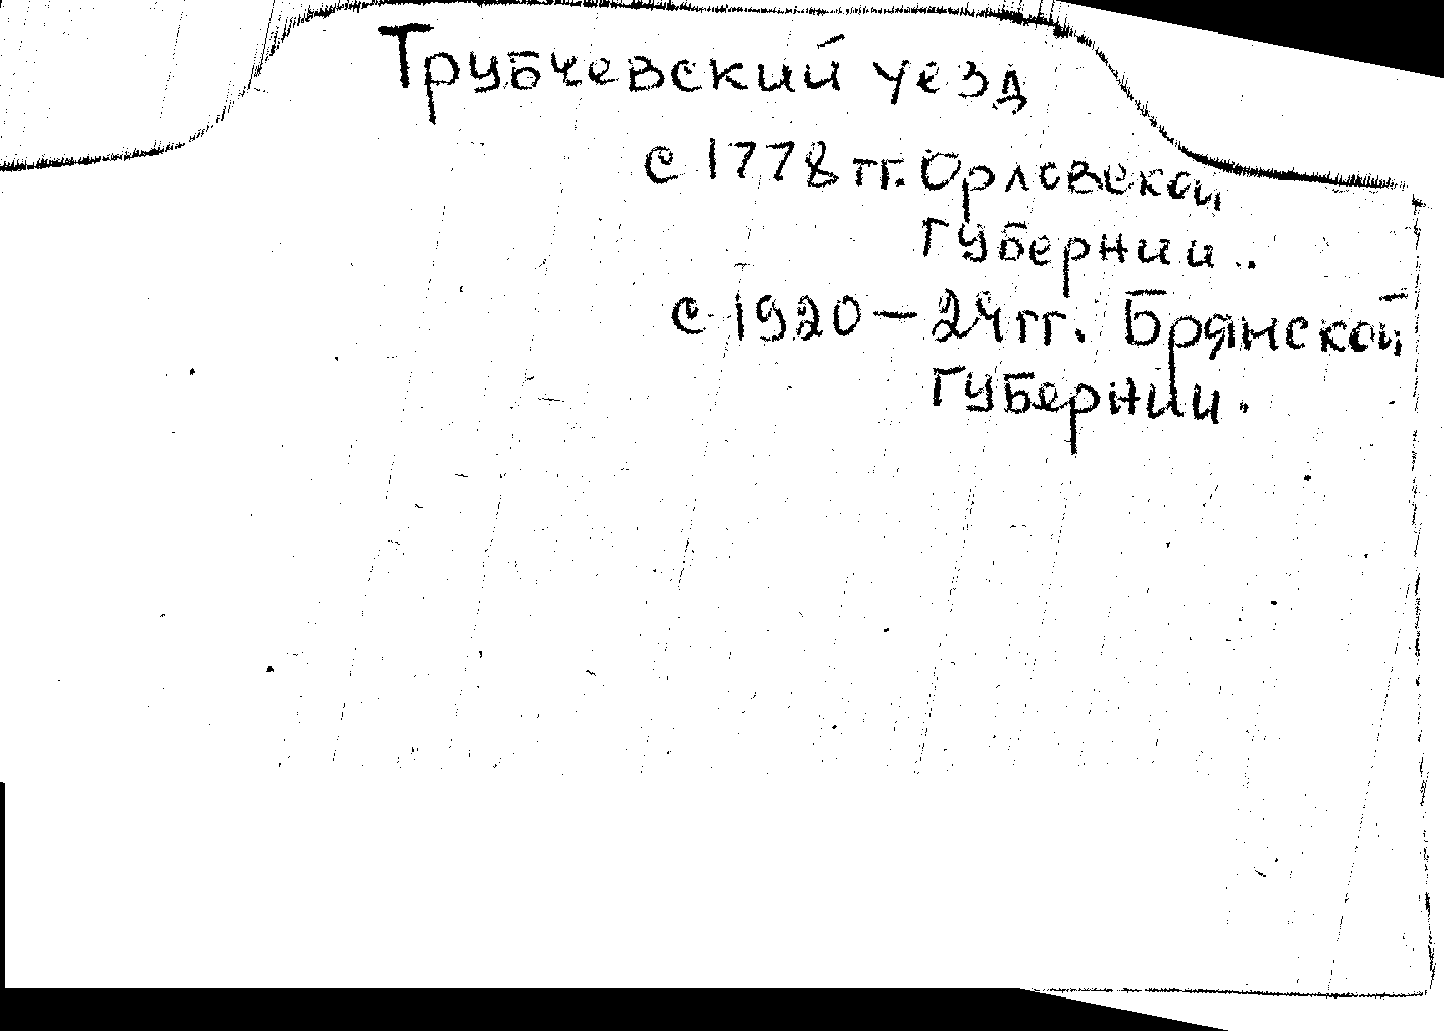 Трубчевский уезд
с 1778 гг. Орловской
губернии.
с 1920 – 24 гг. Брянской
губернии.